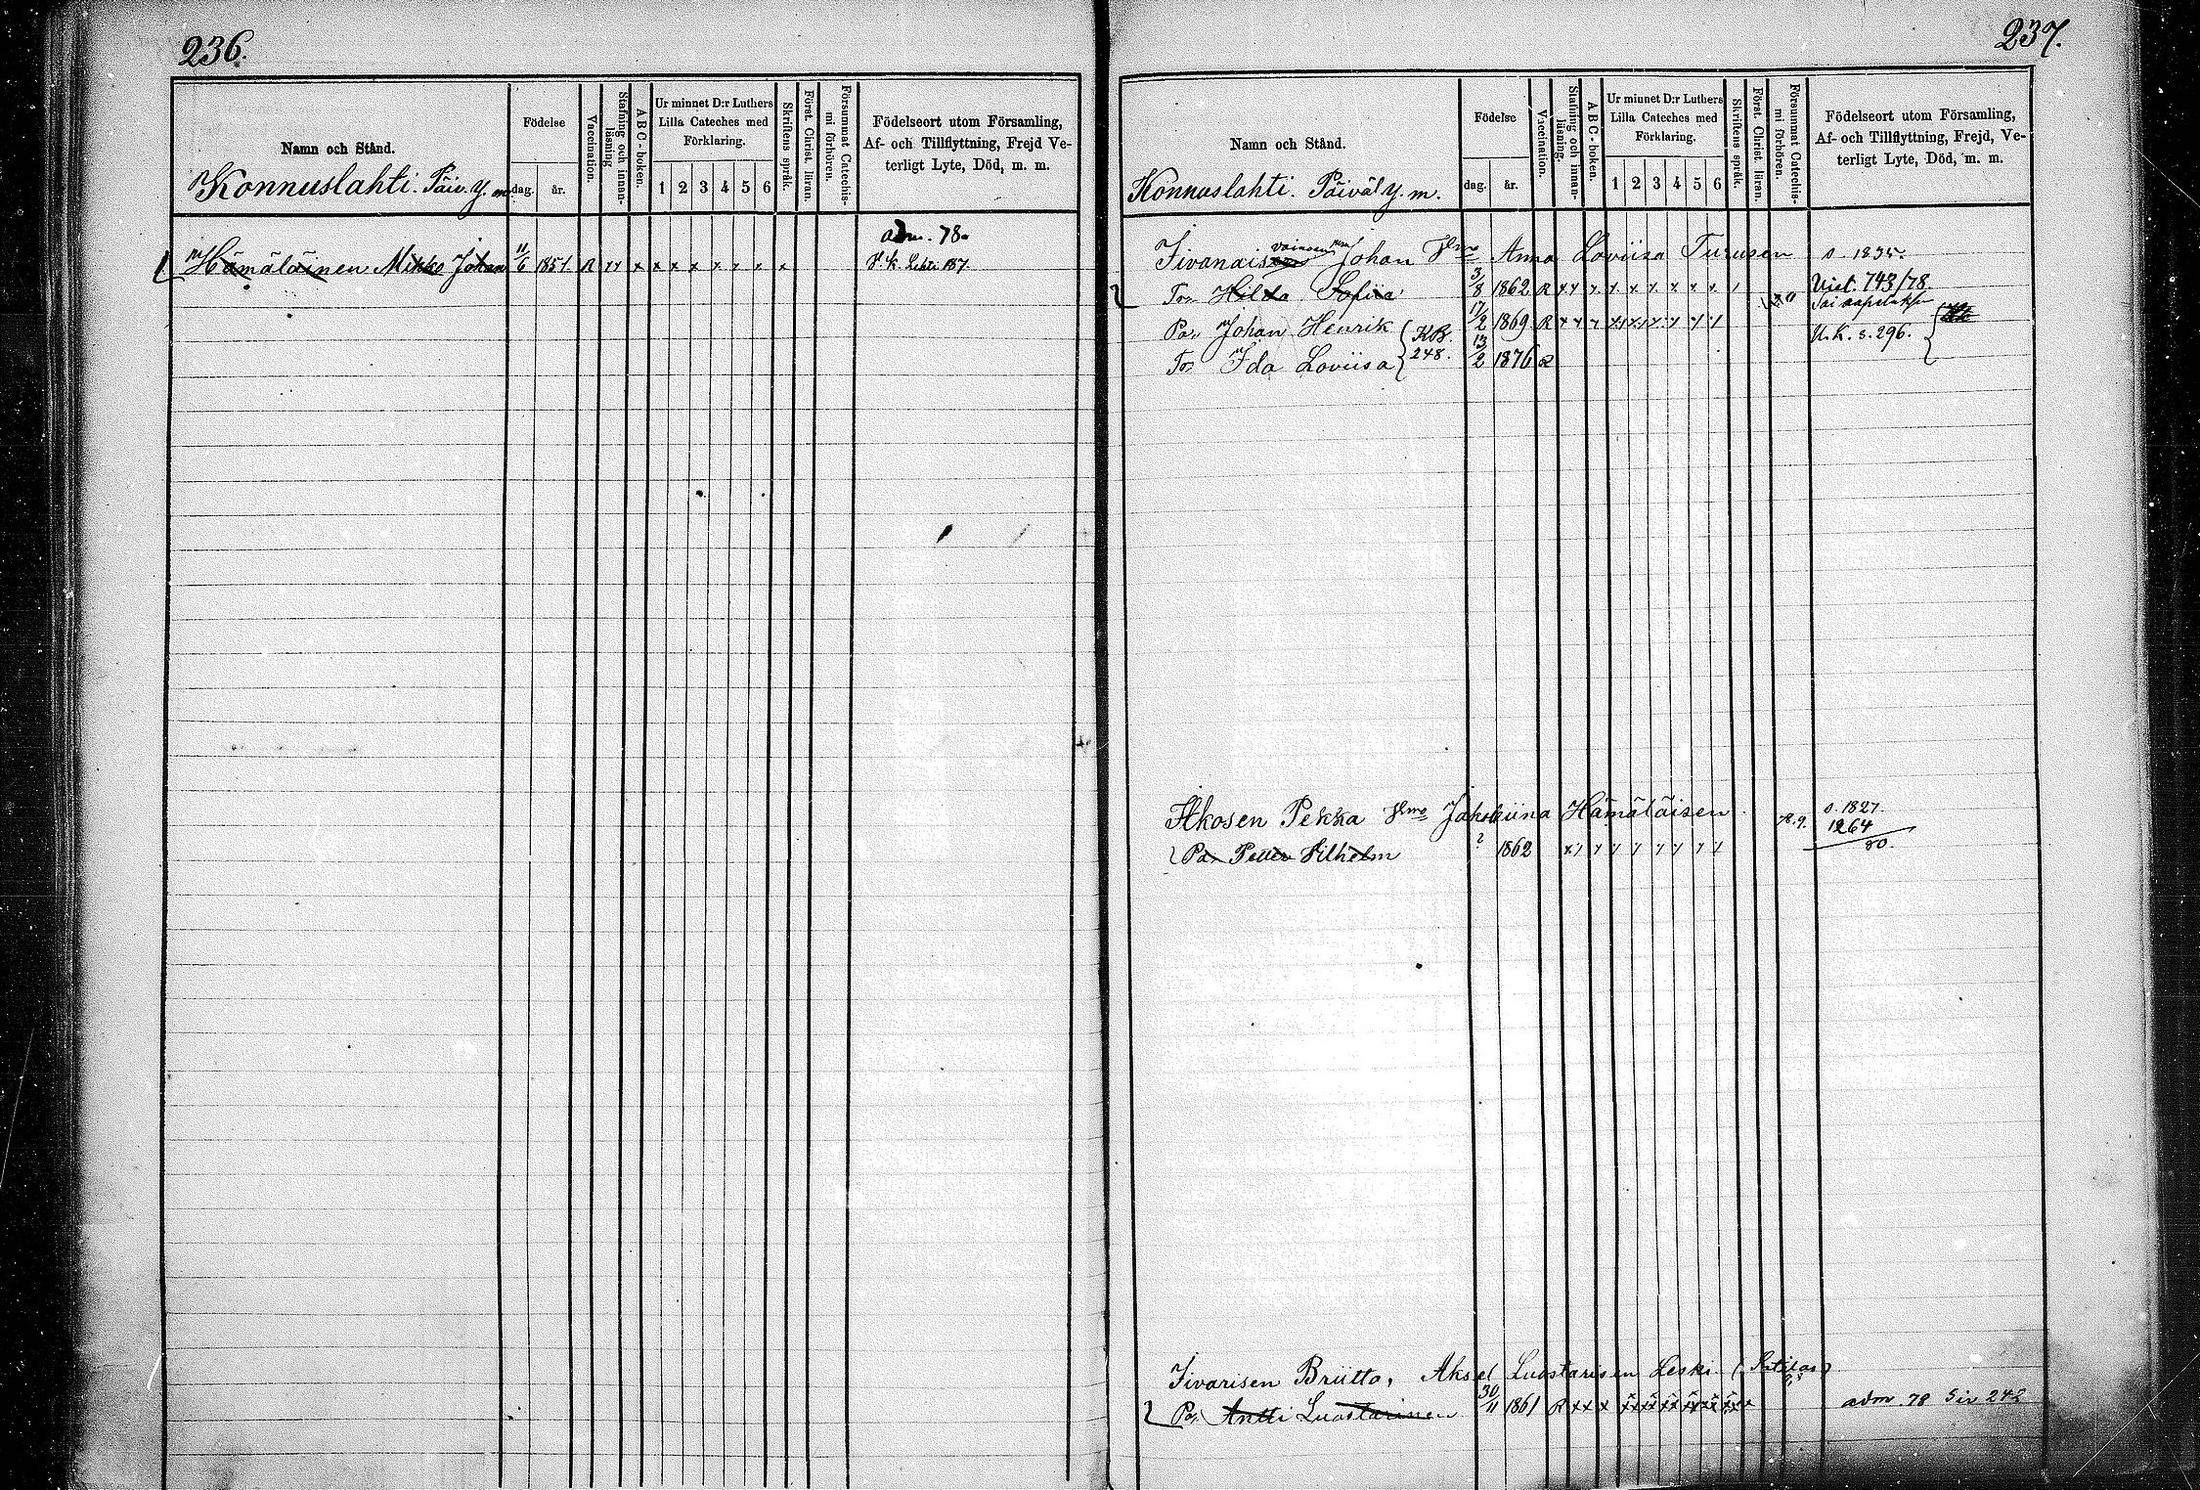 236.
Namn och Stånd.
Födelse
dag.
år.
Vaccination.
Stafning och innan-
läsning
A B C - boken.
Ur minnet D:r Luthers
Lilla Cateches med
Förklaring.
1 2 3 4 5 6
Skriftens språk.
Först. Christ. läran.
Försummat Catechis-
mi förhören.
Födelseort utom Församling,
Af- och Tillflyttning, Frejd Ve-
terligt Lyte, Död, m. m.
Konnuslahti. Päiv. y. m.
adm. 78.
Hämäläinen Mikko Johan 11/6 1851 R x x x x x x x x x x
237.
Namn och Stånd.
Födelse
dag.
år.
Vaccination.
Stafning och innan-
läsning.
A B C - boken.
Ur minnet D:r Luthers
Lilla Cateches med
Förklaring.
1 2 3 4 5 6
Skriftens språk.
Först. Christ. läran.
Försummat Catechis-
mi förhören.
Födelseort utom Församling,
Af- och Tillflyttning, Frejd, Ve-
terligt Lyte, Död, m. m.
Konnuslahti. Päiväl. y. m.
Johan Anna Loviisa Turusen s. 1835.
Hilda Sofiia 3/8 1862 R Uist. 743/78.
Johan Henrik 17/2 1869 R U.K. s. 296.
Ida Loviisa 13/2 1876 R
KB.
248.
Pekka Hämäläisen s. 1827.
1264
80.
Petter Vilhelm ? 1862
Iivarisen Briitta, Aksel Luostarisen Leski
Antti Luostarinen 30/11 1861 R adm. 78 Siv 242